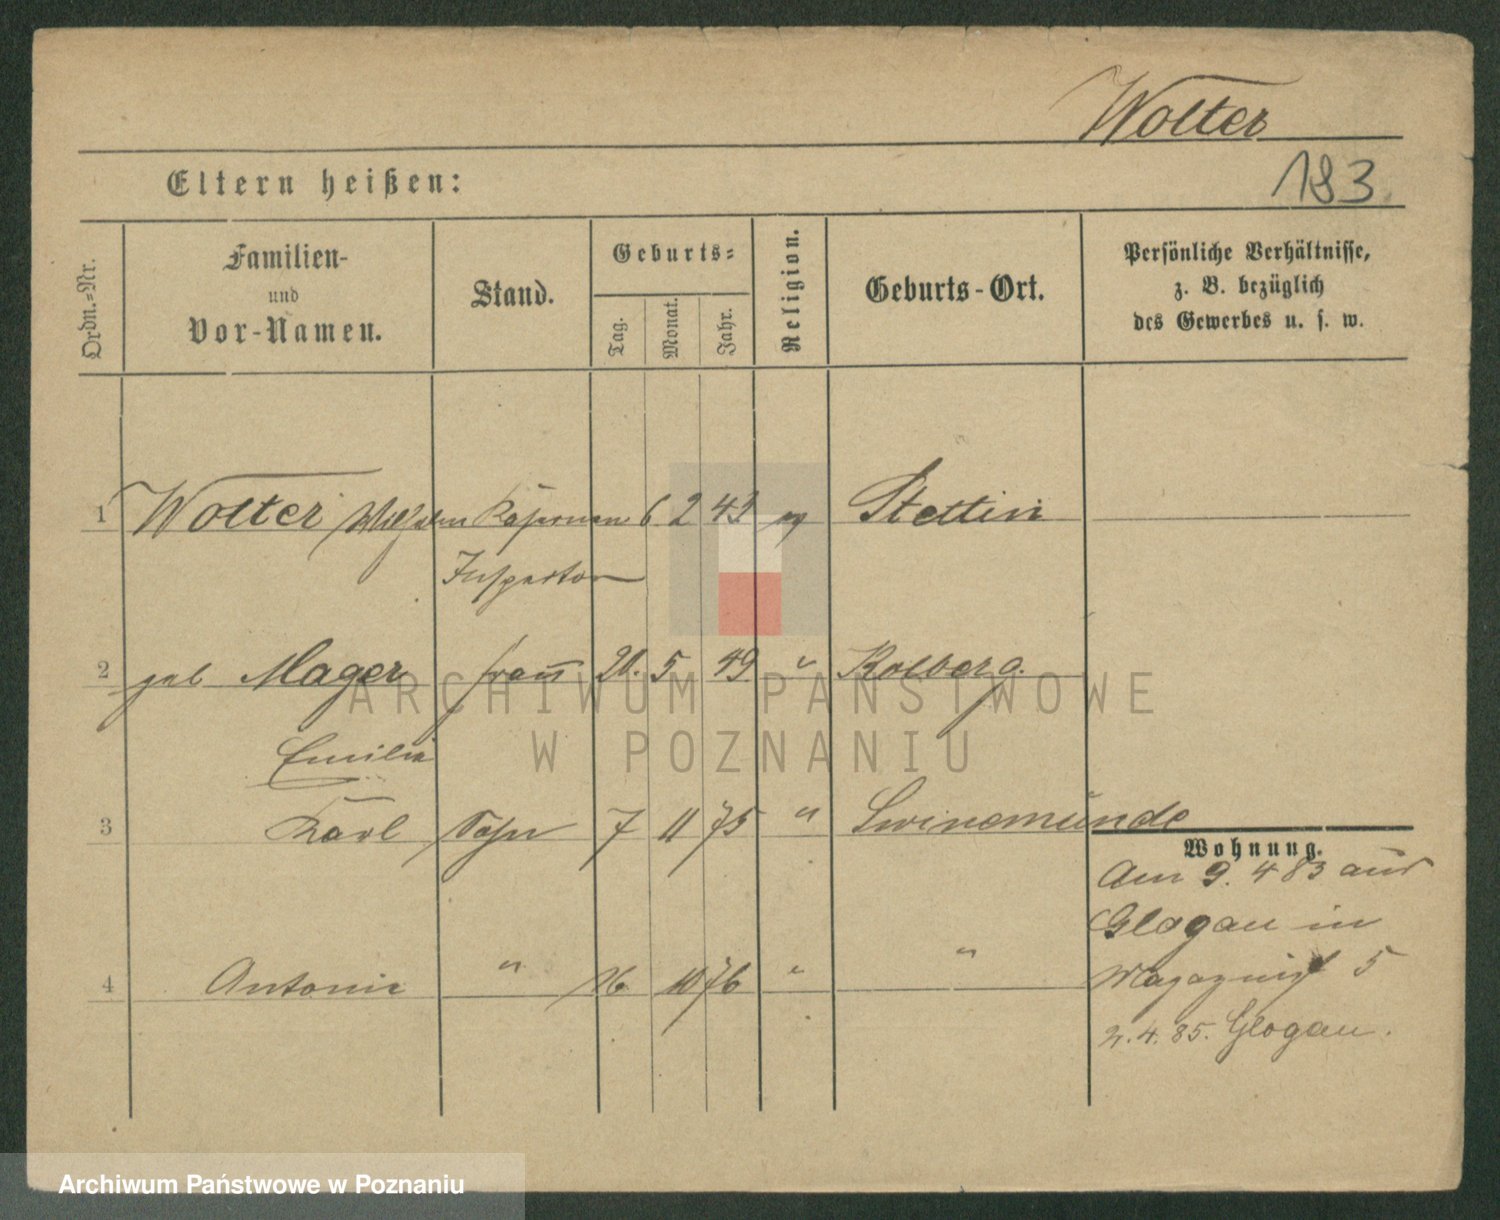 Wolter
183
Eltern heißen:
Ordn.-Nr.
Familien-
und
Vor-Namen.
Stand.
Geburts-
Tag.
Monat.
Jahr.
Religion.
Geburts-Ort.
Persönliche Verhältnisse,
z. B. bezüglich
des Gewerbes u. s. w.
1 Wolter Wilhelm Kasernen 6 2 43 ev Stettin
Inspector
2 geb Mager Frau 20. 5 49 " Kolberg.
Emilie
3 Karl Sohn 7 11 75 " Swinemünde
Wohnung.
Am 9. 4 83 aus
Glogau in
Magazinst 5
2. 4. 85. Glogau.
4 Antonie " 16 10 76 " "
ARCHIWUM PAŃSTWOWE
W POZNANIU
Archiwum Państwowe w Poznaniu